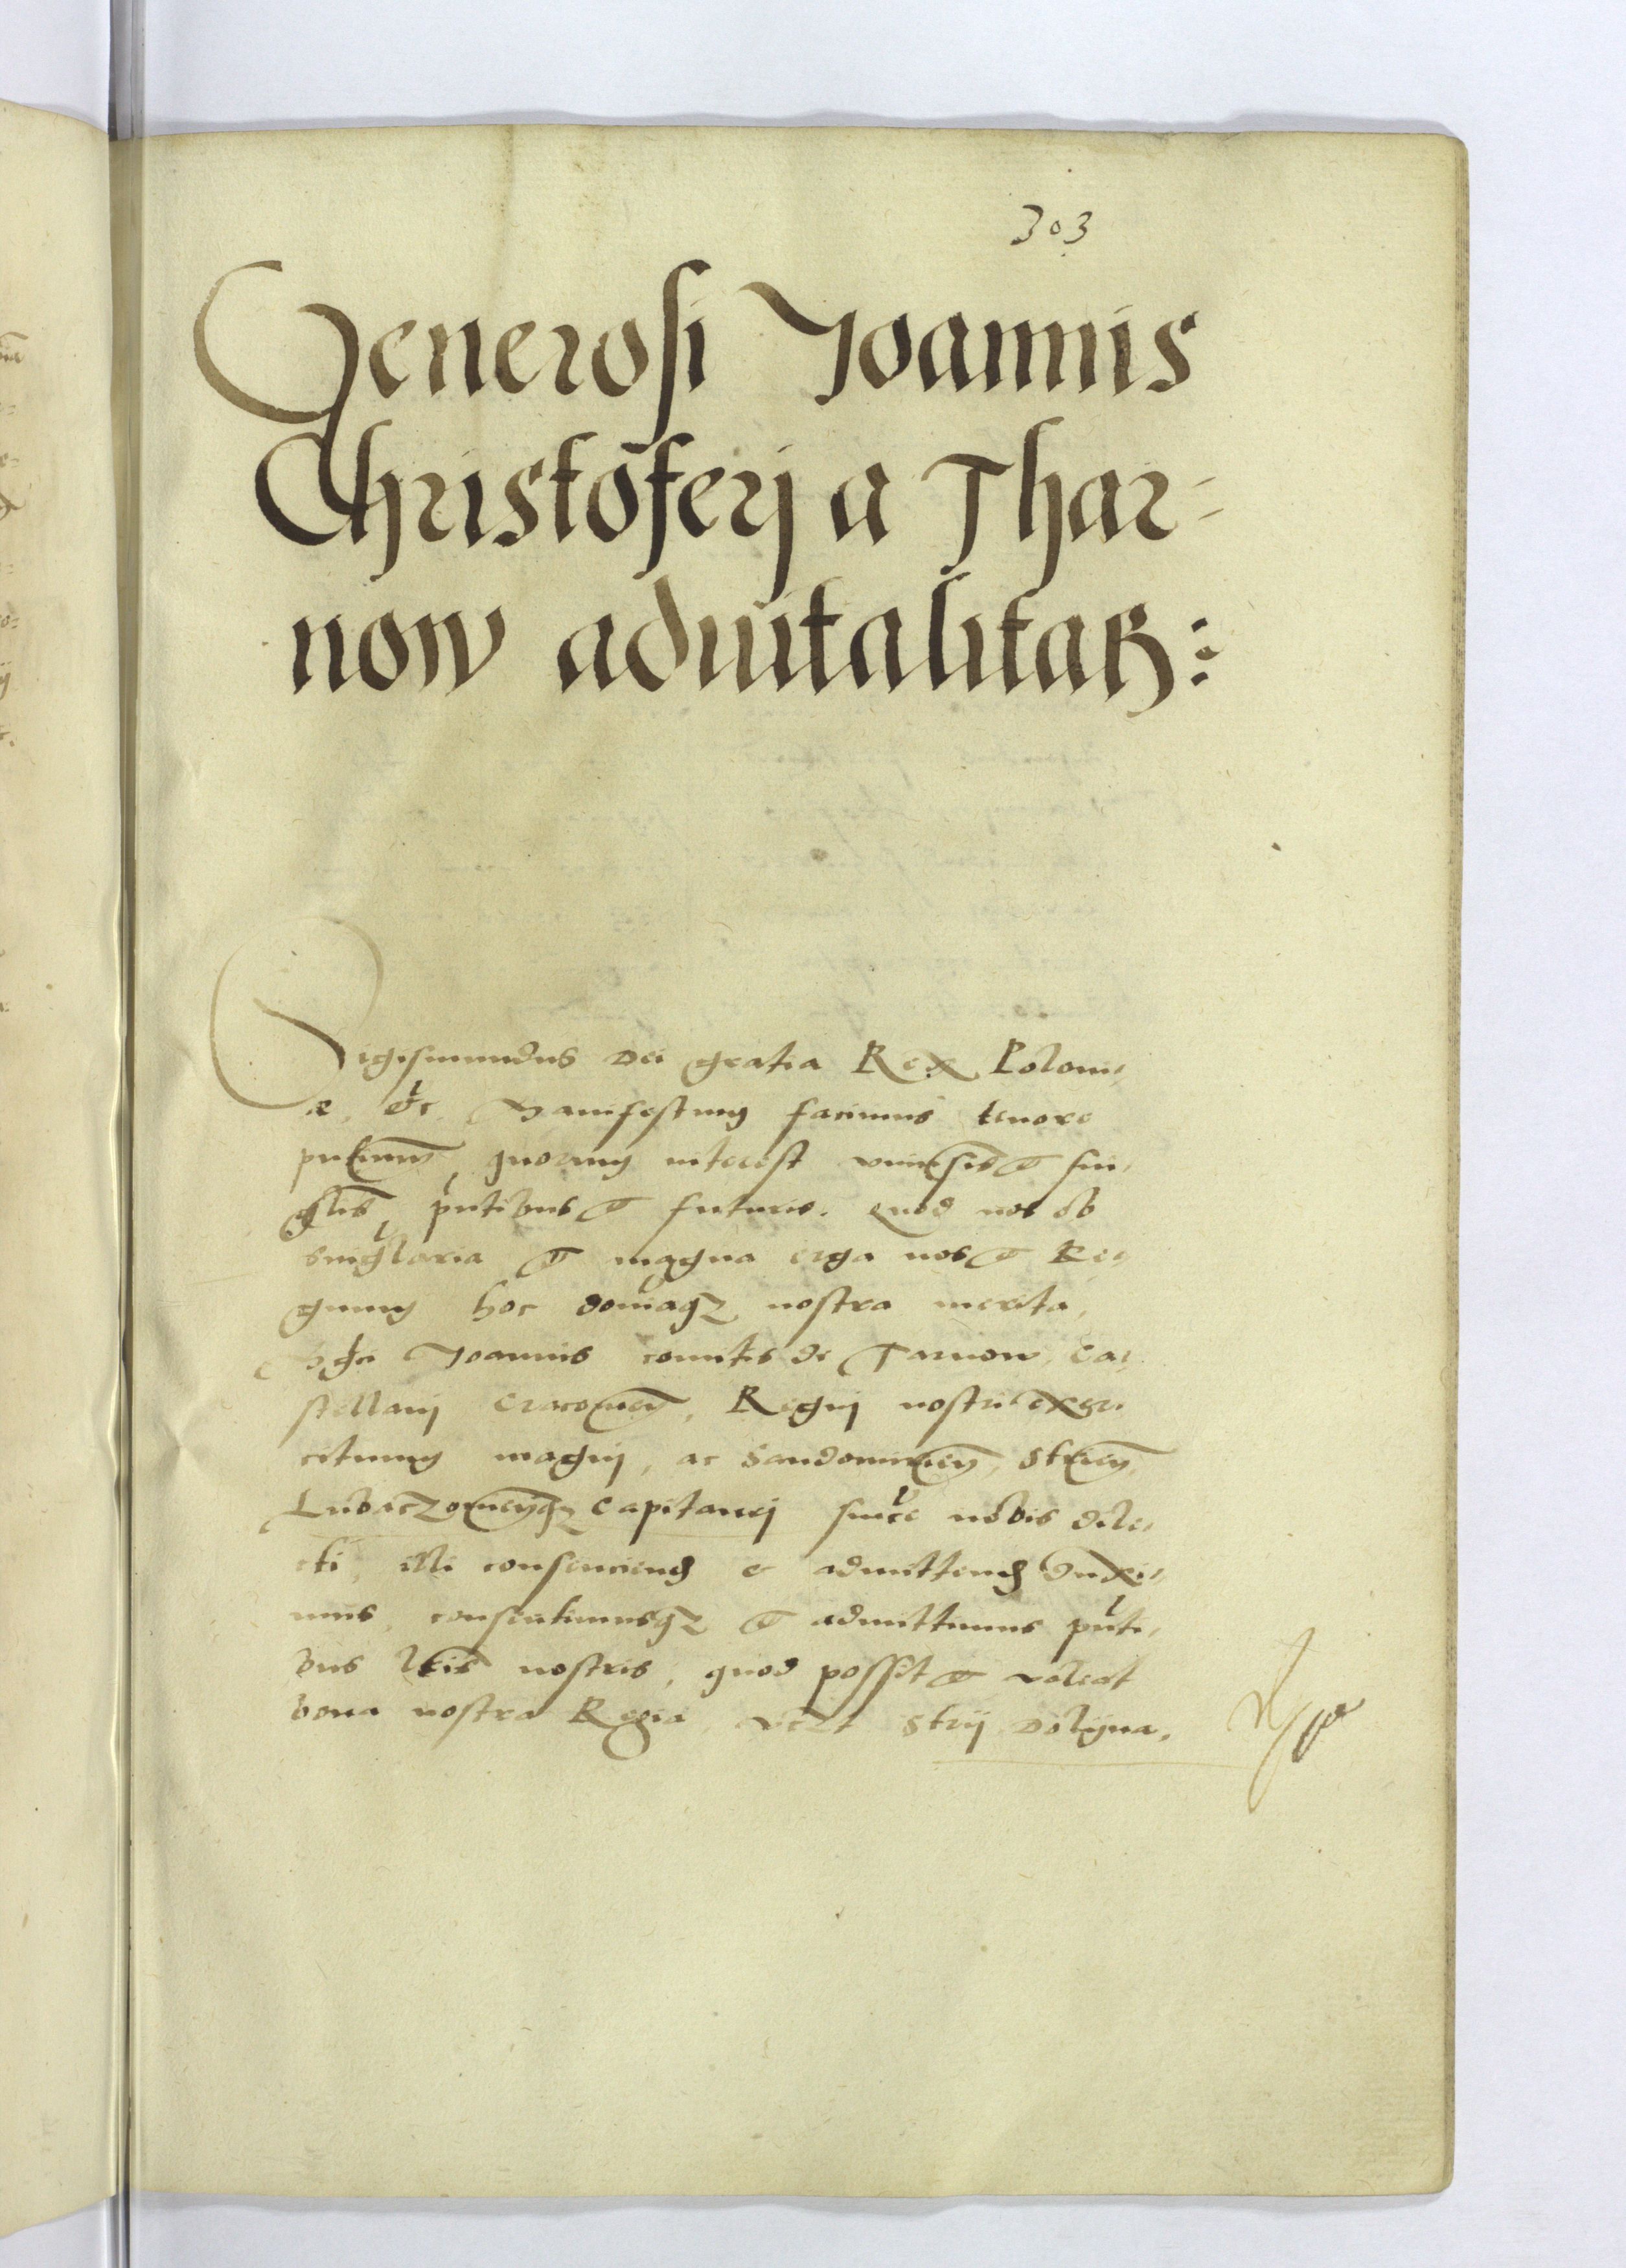 303
Generosi Joannis
Christoferj a Thar-
now aduitalitas:
Sigismundus Dei gratia Rex Poloni-
æ, &c. Manifestum facimus tenore
pntium, quorum interest vniuersis & sin-
glis, pntibus & futuris. quod nos ob
singlaria & magna erga nos & Re-
gnum hoc domiaq3 nostra merita,
Mgci Joannis comitis de Tarnow, Cas-
stellanj Cracouien, Regnj nostri exer-
cituum magnj, ac Sandomirien, Strien,
Lubaczouienq3 Capitanej sincere nobis dile-
cti, illi consenciend & admittend duxi-
mus, consentimusq3 & admittimus pnti-
bus lris nostris, quod possit & valeat
bona nostra Regia, vidzt Strij Dolijna,